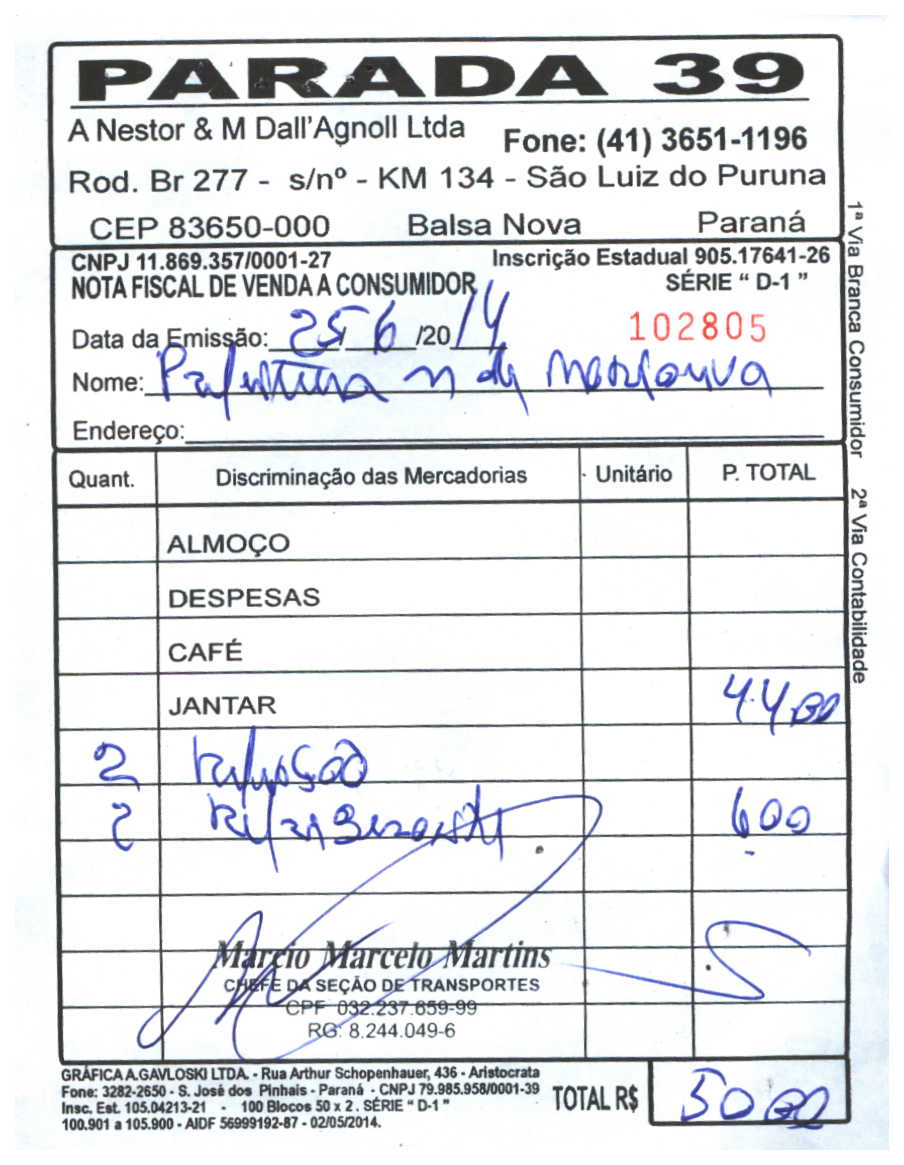 PARADA 39
A Nestor & M Dall'Agnoll Ltda Fone: (41) 3651-1196
Rod. Br 277 - s/nº - KM 134 - São Luiz do Puruna
CEP 83650-000 Balsa Nova Paraná
CNPJ 11.869.357/0001-27 Inscrição Estadual 905.17641-26
NOTA FISCAL DE VENDA A CONSUMIDOR SÉRIE “ D-1 ”
Data da Emissão: 25/6/2014 102805
Nome: Prefeitura M de
Endereço:
Quant. Discriminação das Mercadorias Unitário P. TOTAL
ALMOÇO
DESPESAS
CAFÉ
JANTAR 44,00
2 Refeição
2 Refrigerante 6 00
Marcio Marcelo Martins
CHEFE DA SEÇÃO DE TRANSPORTES
CPF 032.237.659-99
RG: 8.244.049-6
GRÁFICA A. GAVLOSKI LTDA. - Rua Arthur Schopenhauer, 436 - Aristocrata
Fone: 3282-2650 - S. José dos Pinhais - Paraná - CNPJ 79.985.958/0001-39
Insc. Est. 105.04213-21 - 100 Blocos 50 x 2 . SÉRIE “ D-1 ”
100.901 a 105.900 - AIDF 56999192-87 - 02/05/2014.
TOTAL R$ 50 00
1ª Via Branca Consumidor 2ª Via Contabilidade